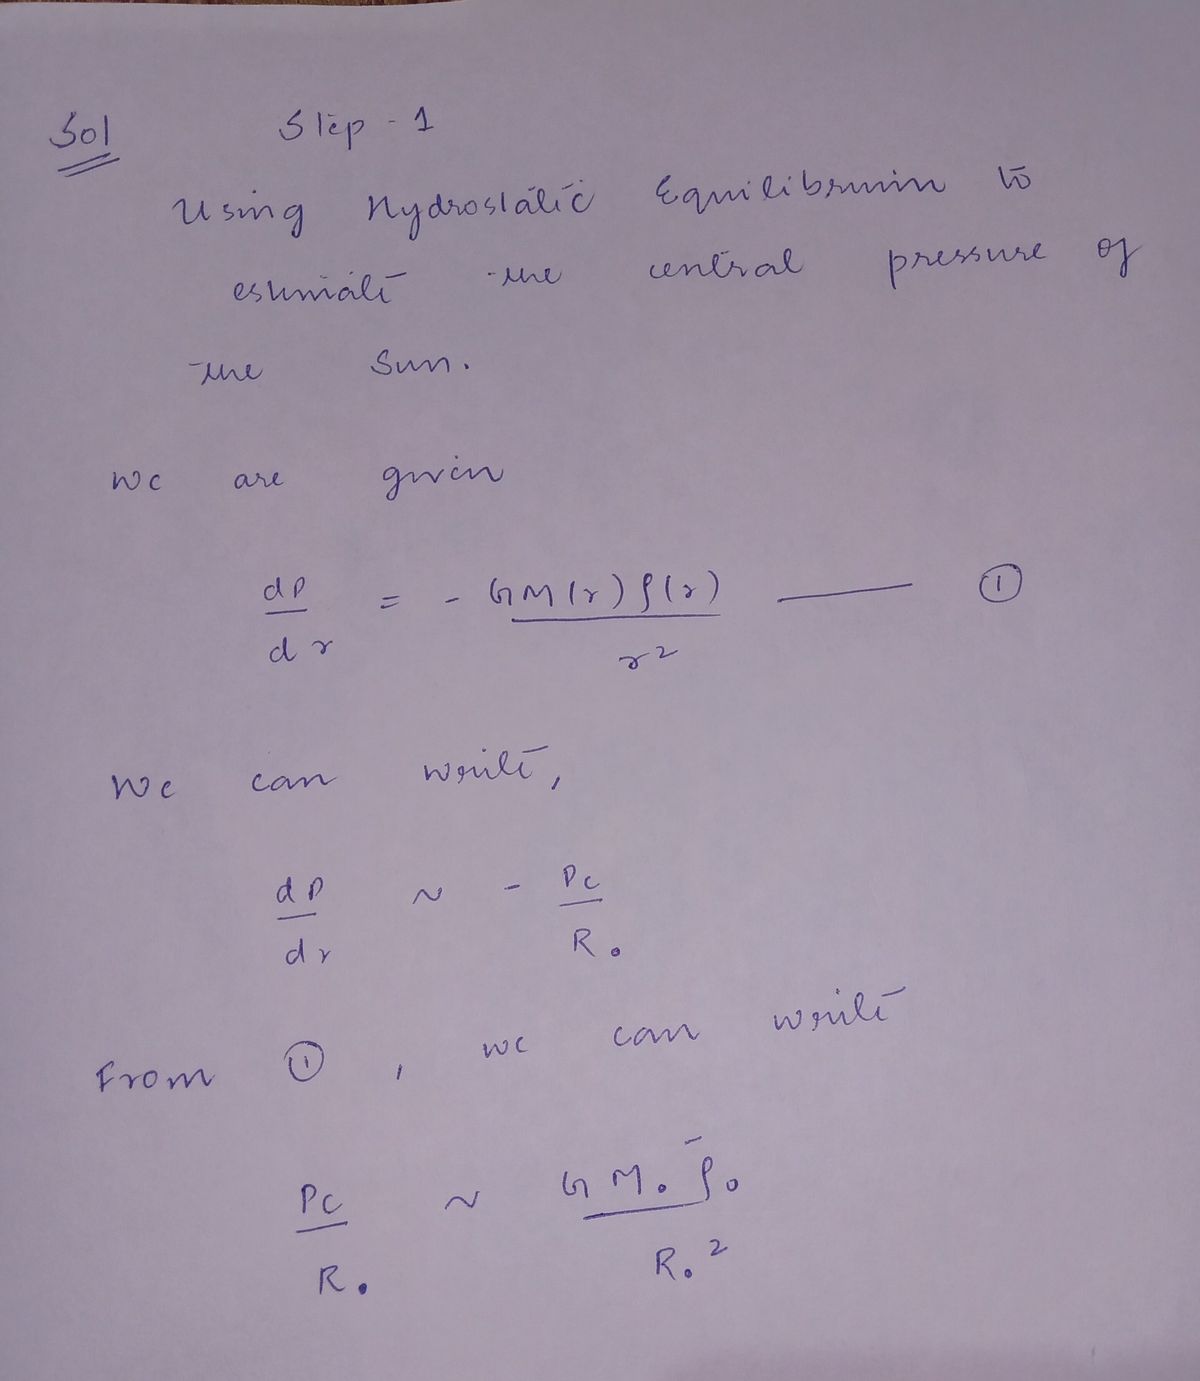 Sol Step - 1
Using Hydrostatic Equilibrium to
estimate the central pressure of
the Sun.
We are given
dP/dr = - GM(r)ρ(r)/r² —— ①
We can write,
dP/dr ~ - Pc/R.
From ①, we can write
Pc/R. ~ GM. ρ̄₀/R.²